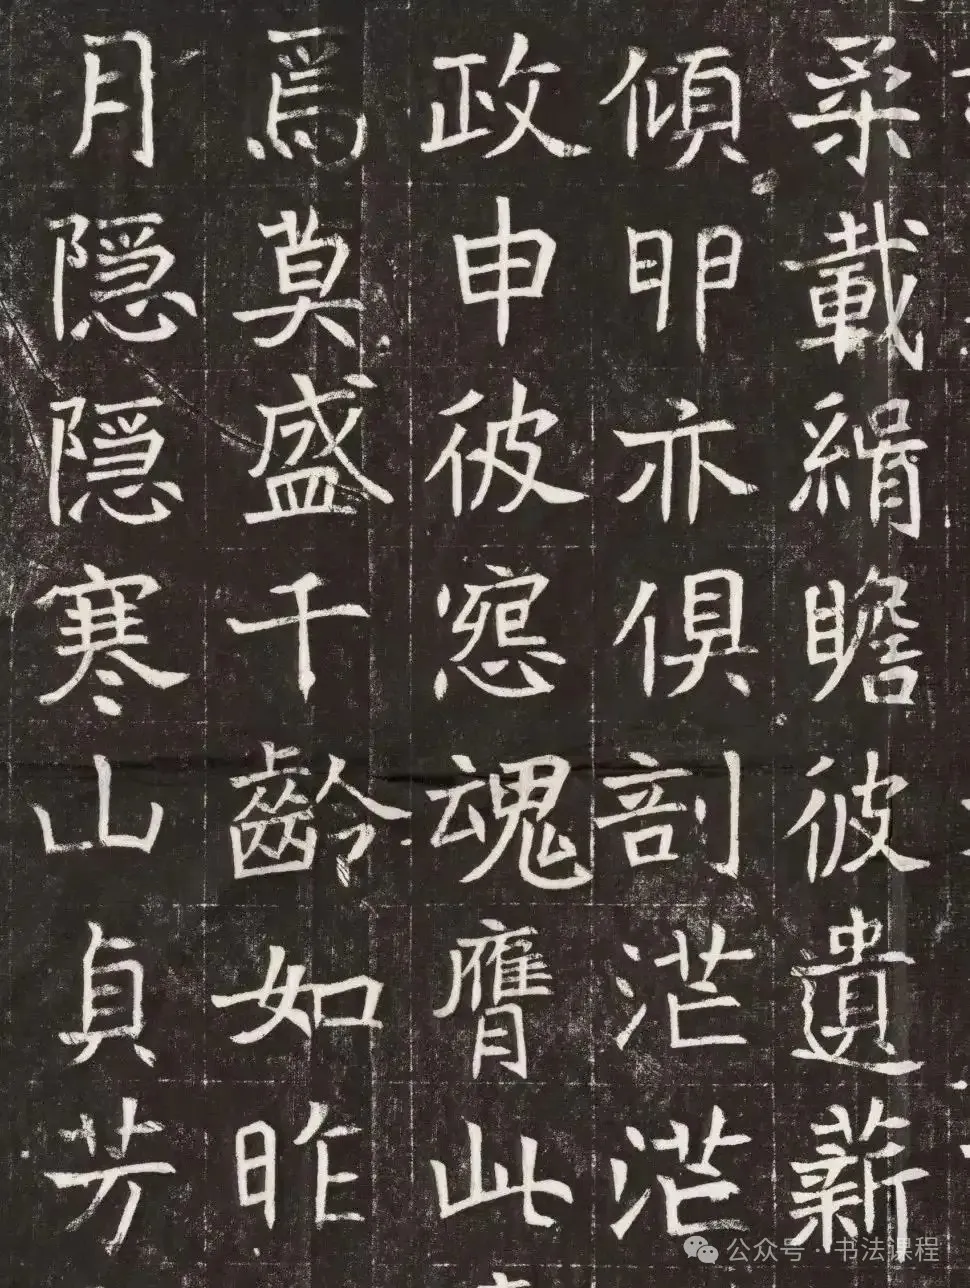 柔載緝瞻彼遺薪
傾卯亦俱剖茫茫
政申彼冤魂膺此
焉莫盛千齡如昨
月隠隠寒山貞芳
公众号 · 书法课程